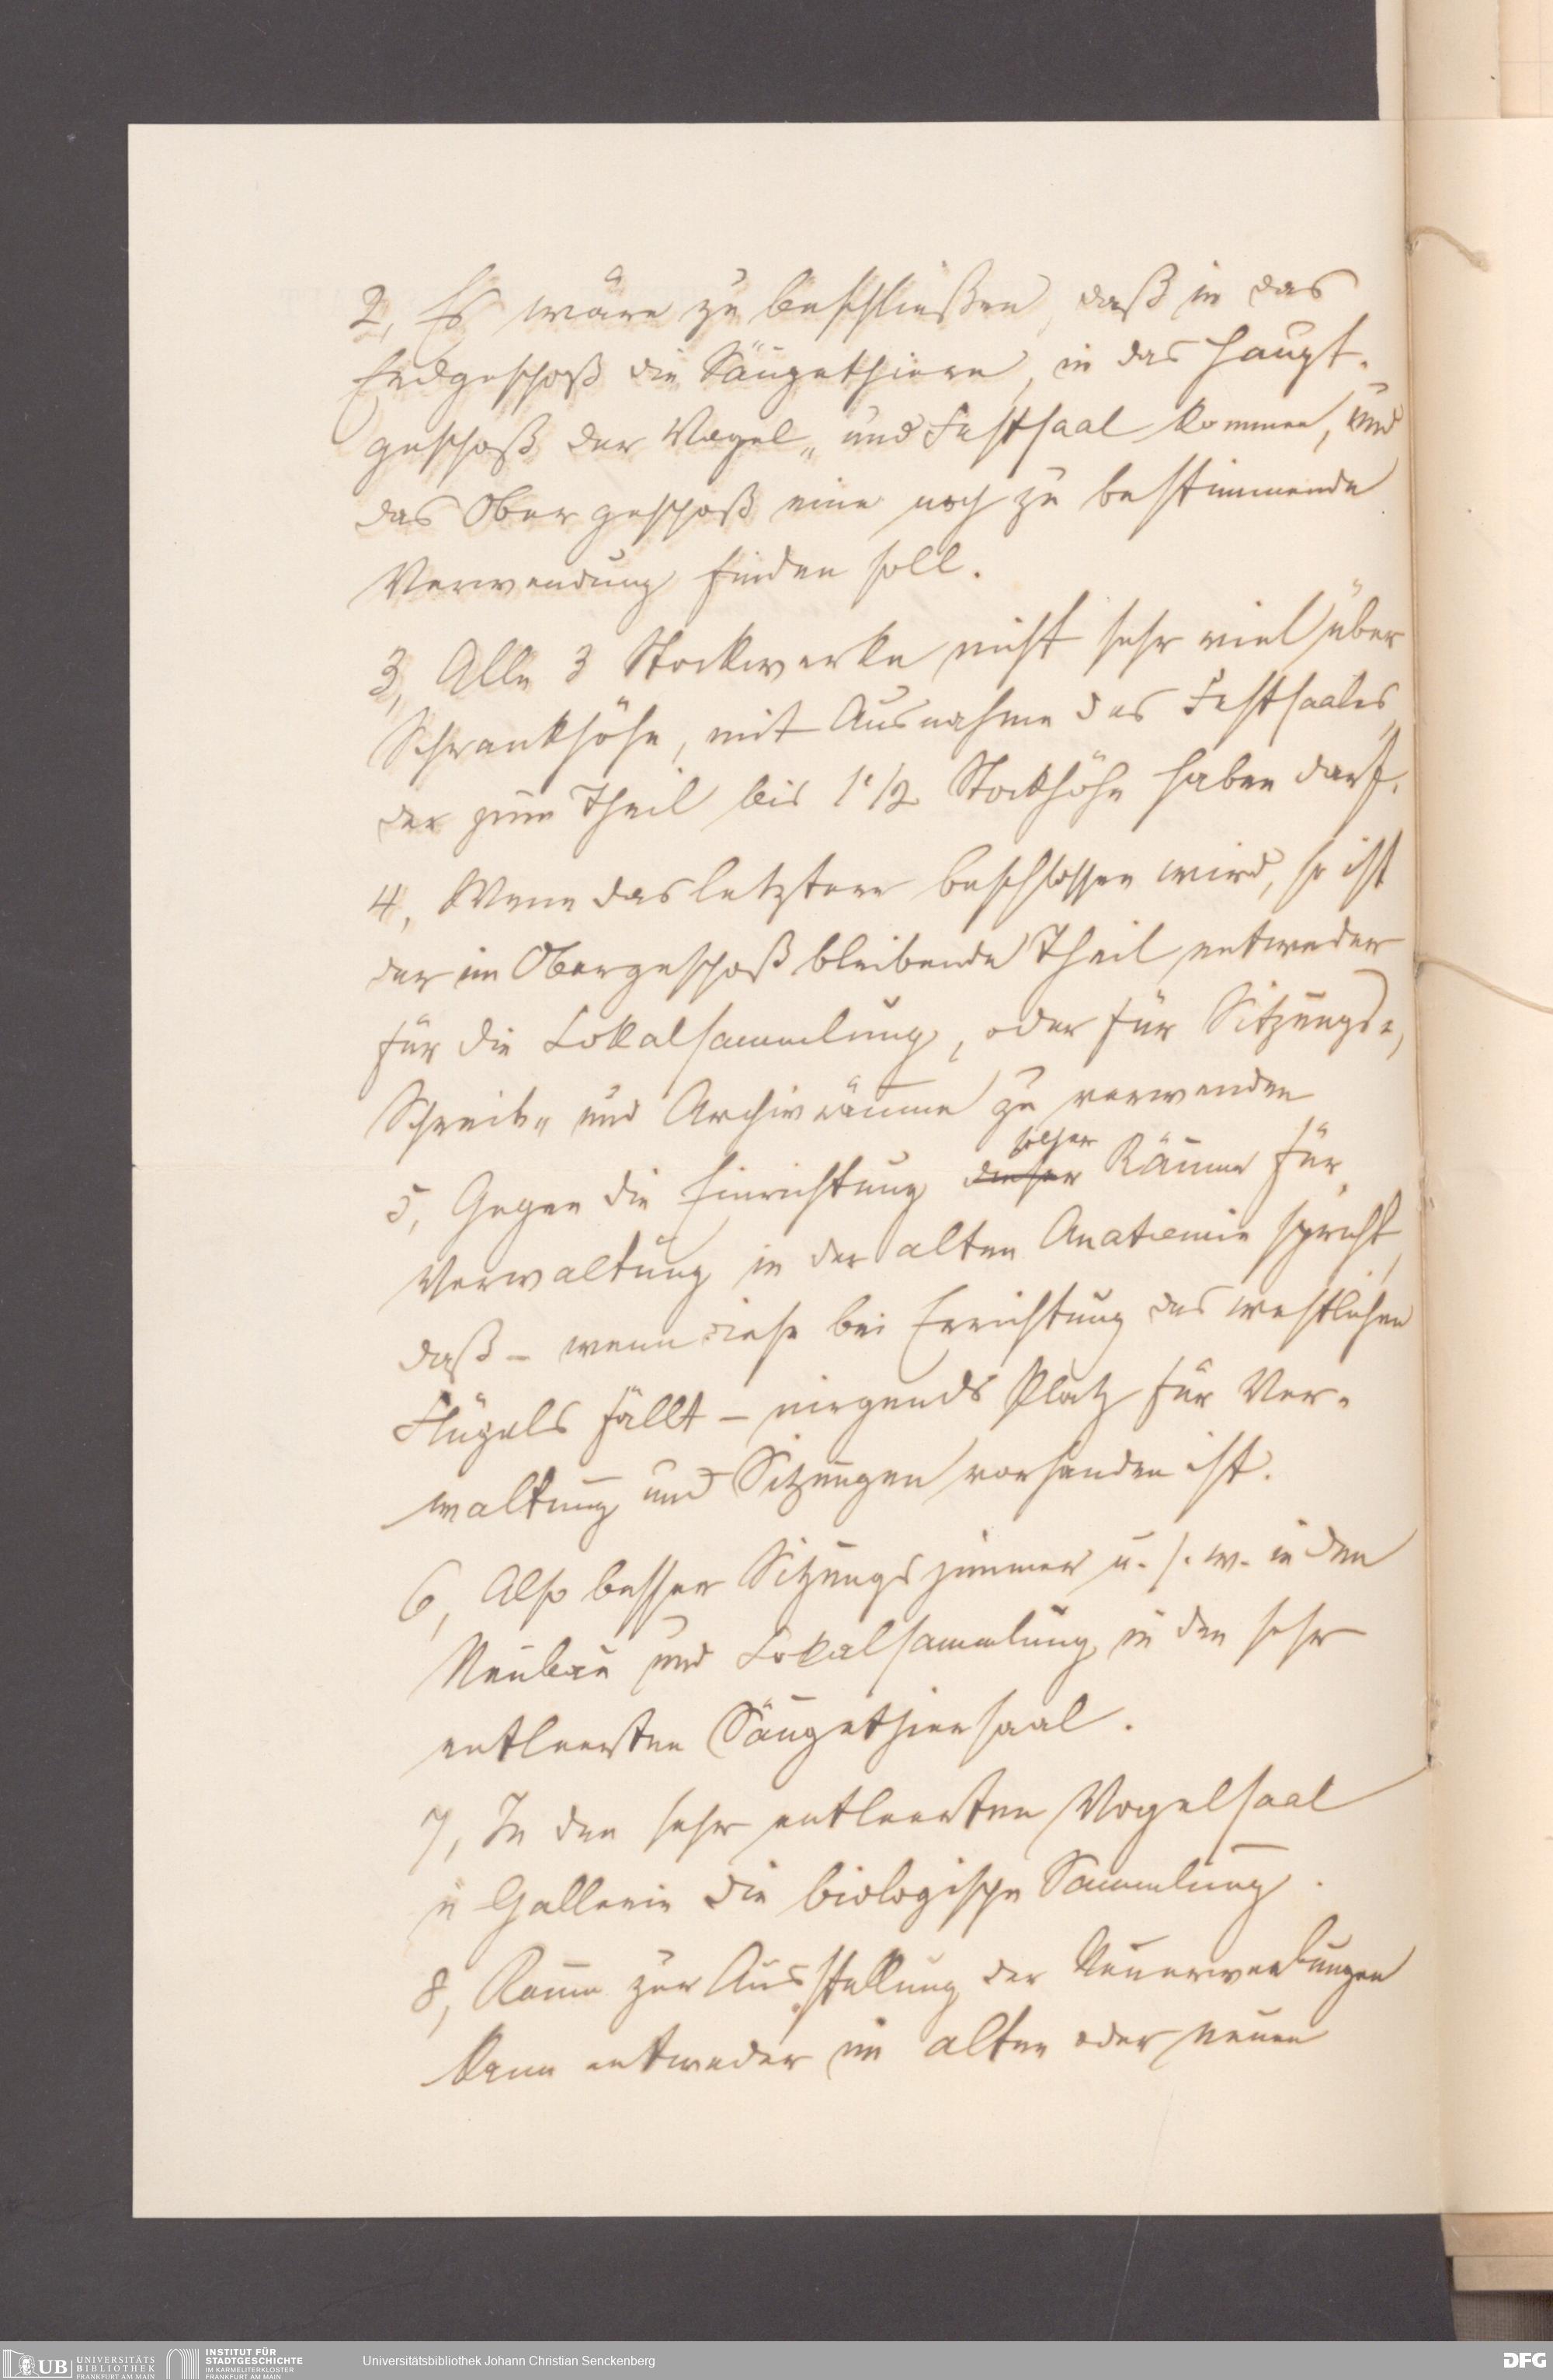 2, Es wäre zu beschließen, daß in das
Erdgeschoß die Säugethiere, in das Haupt-
geschoß der Vogel- und Festsaal kommen, und
das Obergeschoß eine noch zu bestimmende
Verwendung finden soll.
3, Alle 3 Stockwerke nicht sehr viel über
Schrankhöhe, mit Ausnahme des Festsaales,
der zum Theil bis 1 1/2 Stockhöhe haben darf.
4, Wenn das letztere beschlossen wird, so ist
der im Obergeschoß bleibende Theil entweder
für die Lokalsammlung, oder für Sitzungs-,
Schreib- und Archivräume zu verwenden
5, Gegen die Einrichtung dieser solcher Räume für
Verwaltung in der alten Anatomie spricht,
daß – wenn diese bei Errichtung des westlichen
Flügels fällt – nirgends Platz für Ver-
waltung und Sitzungen vorhanden ist.
6, Also besser Sitzungszimmer u. s. w. in den
Neubau und Lokalsammlung in den sehr
entleerten Säugethiersaal.
7, In den sehr entleerten Vogelsaal
u Gallerie die biologische Sammlung.
8, Raum zur Ausstellung der Neuerwerbungen
kann entweder im alten oder neuen
UB UNIVERSITÄTS BIBLIOTHEK FRANKFURT AM MAIN
INSTITUT FÜR STADTGESCHICHTE IM KARMELITERKLOSTER FRANKFURT AM MAIN
Universitätsbibliothek Johann Christian Senckenberg
DFG